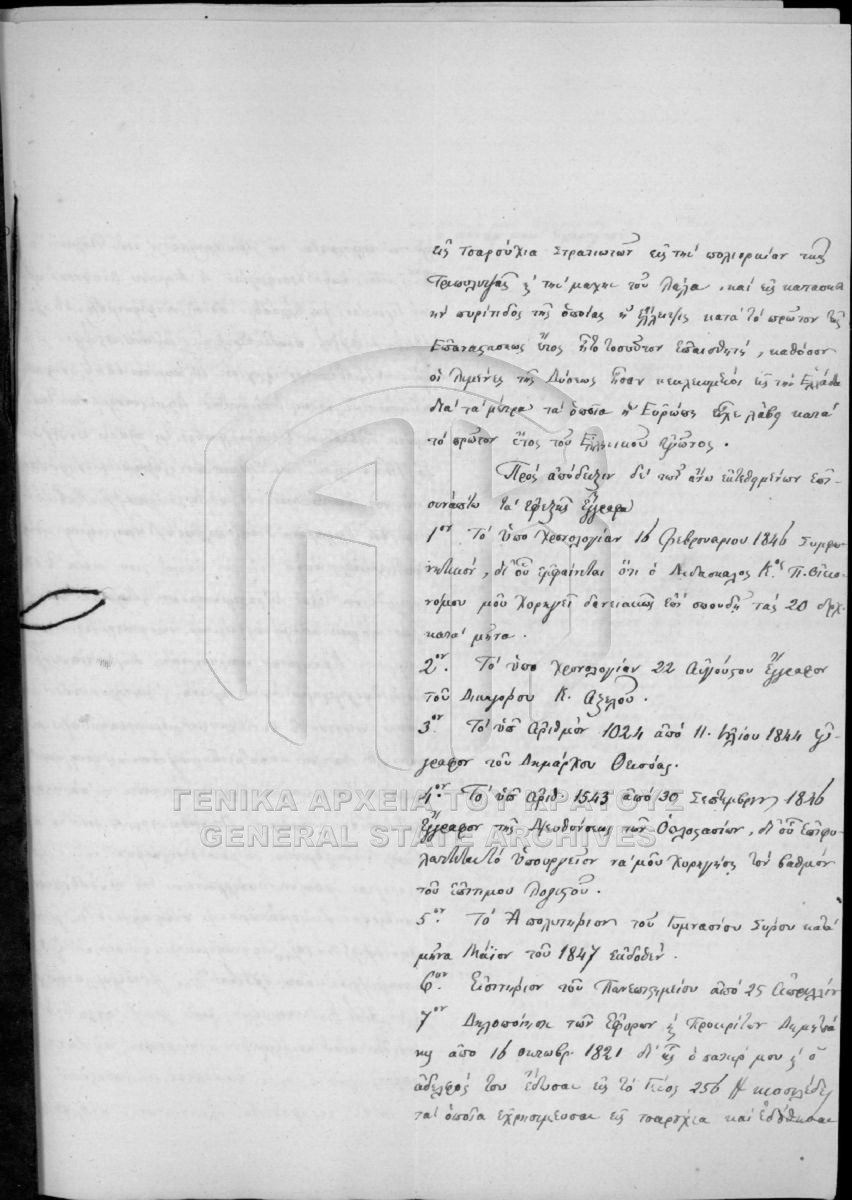 εἰς τσαρούχια Στρατιωτῶν εἰς τὴν πολιορκίαν τῆς
Τριπολιτζᾶς ϗ τὴν μάχην τοῦ Λάλα, καὶ εἰς κατασκευ
ὴν πυρίτιδος τῆς ὁποίας ἡ ἔλλειψις κατὰ τὸ πρῶτον τῆς
Ἐπαναστάσεως ἔτος ἦτο τοσοῦτον ἐπαισθητὴ, καθόσον
οἱ λιμένες τῆς Δύσεως ἦσαν κεκλεισμένοι εἰς τὴν Ἑλλάδα
διὰ τὰ μέτρα τὰ ὁποῖα ἡ Εὐρώπη εἶχε λάβη κατὰ
τὸ πρῶτον ἔτος τοῦ Ἑλληνικοῦ ἀγῶνος.
Πρὸς ἀπόδειξιν δὲ τῶν ἄνω ἐκτεθημένων ἐπι-
συνάπτω τὰ ἐφεξῆς ἔγγραφα
1ον Τὸ ὑπὸ χρονολογίαν 16 Φεβρουαρίου 1846 Συμφω-
νητικὸν, δι' οὗ ἐμφαίνεται ὅτι ὁ Διδάσκαλος Κος Π. Οἰκο-
νόμου μοῦ χορηγεῖ δανειακῶς ἐπὶ σπουδῇ τὰς 20 δρχ.
κατὰ μῆνα.
2ον. Τὸ ὑπὸ χρονολογίαν 22 Αὐγούστου ἔγγραφον
τοῦ Δικηγόρου Κ. Ἀξελοῦ.
3ον. Τὸ ὑπ' Ἀριθμὸν 1024 ἀπὸ 11. Ἰουλίου 1844 ἔγ-
γραφον τοῦ Δημάρχου Θεισόας.
4ον. Τὸ ὑπ' Ἀριθ. 1543 ἀπὸ 30 Σεπτεμβρίου 1846
ἔγγραφον τῆς Διευθύνσεως τῶν Ὁλοκασίων, δι' οὗ ἐπιφυ-
λάττεται τὸ Ὑπουργεῖον νὰ μοῦ χορηγήσῃ τὸν βαθμὸν
τοῦ ἐπιτίμου Λογιστοῦ.
5ον. Τὸ Ἀπολυτήριον τοῦ Γυμνασίου Σύρου κατὰ
μῆνα Μάϊον τοῦ 1847 ἐκδοθέν.
6ον. Εἰσιτήριον τοῦ Πανεπιστημείου ἀπὸ 25 Ἀπριλλίου
7ον Δηλοποίησις τῶν Ἐφόρων ϗ Προκρίτων Δημητσά
νης ἀπὸ 16 Ὀκτωβρ. 1821 δι' ἧς ὁ πατήρ μου ϗ ὁ
ἀδελφός του ἔδωσαν εἰς τὸ Γένος 256
τὰ ὁποῖα ἐχρησίμευσαν εἰς τσαρούχια καὶ ἐδόθησαν
ΓΕΝΙΚΑ ΑΡΧΕΙΑ ΤΟΥ ΚΡΑΤΟΥΣ
GENERAL STATE ARCHIVES